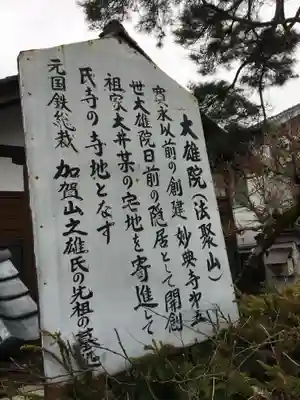 大雄院（法聚山）
寛永以前の創建 妙典寺第五
世大雄院日前の隠居として開創
祖家大井某の宅地を寄進して
氏寺の寺地となす
元国鉄総裁 加賀山之雄氏の先祖の墓地